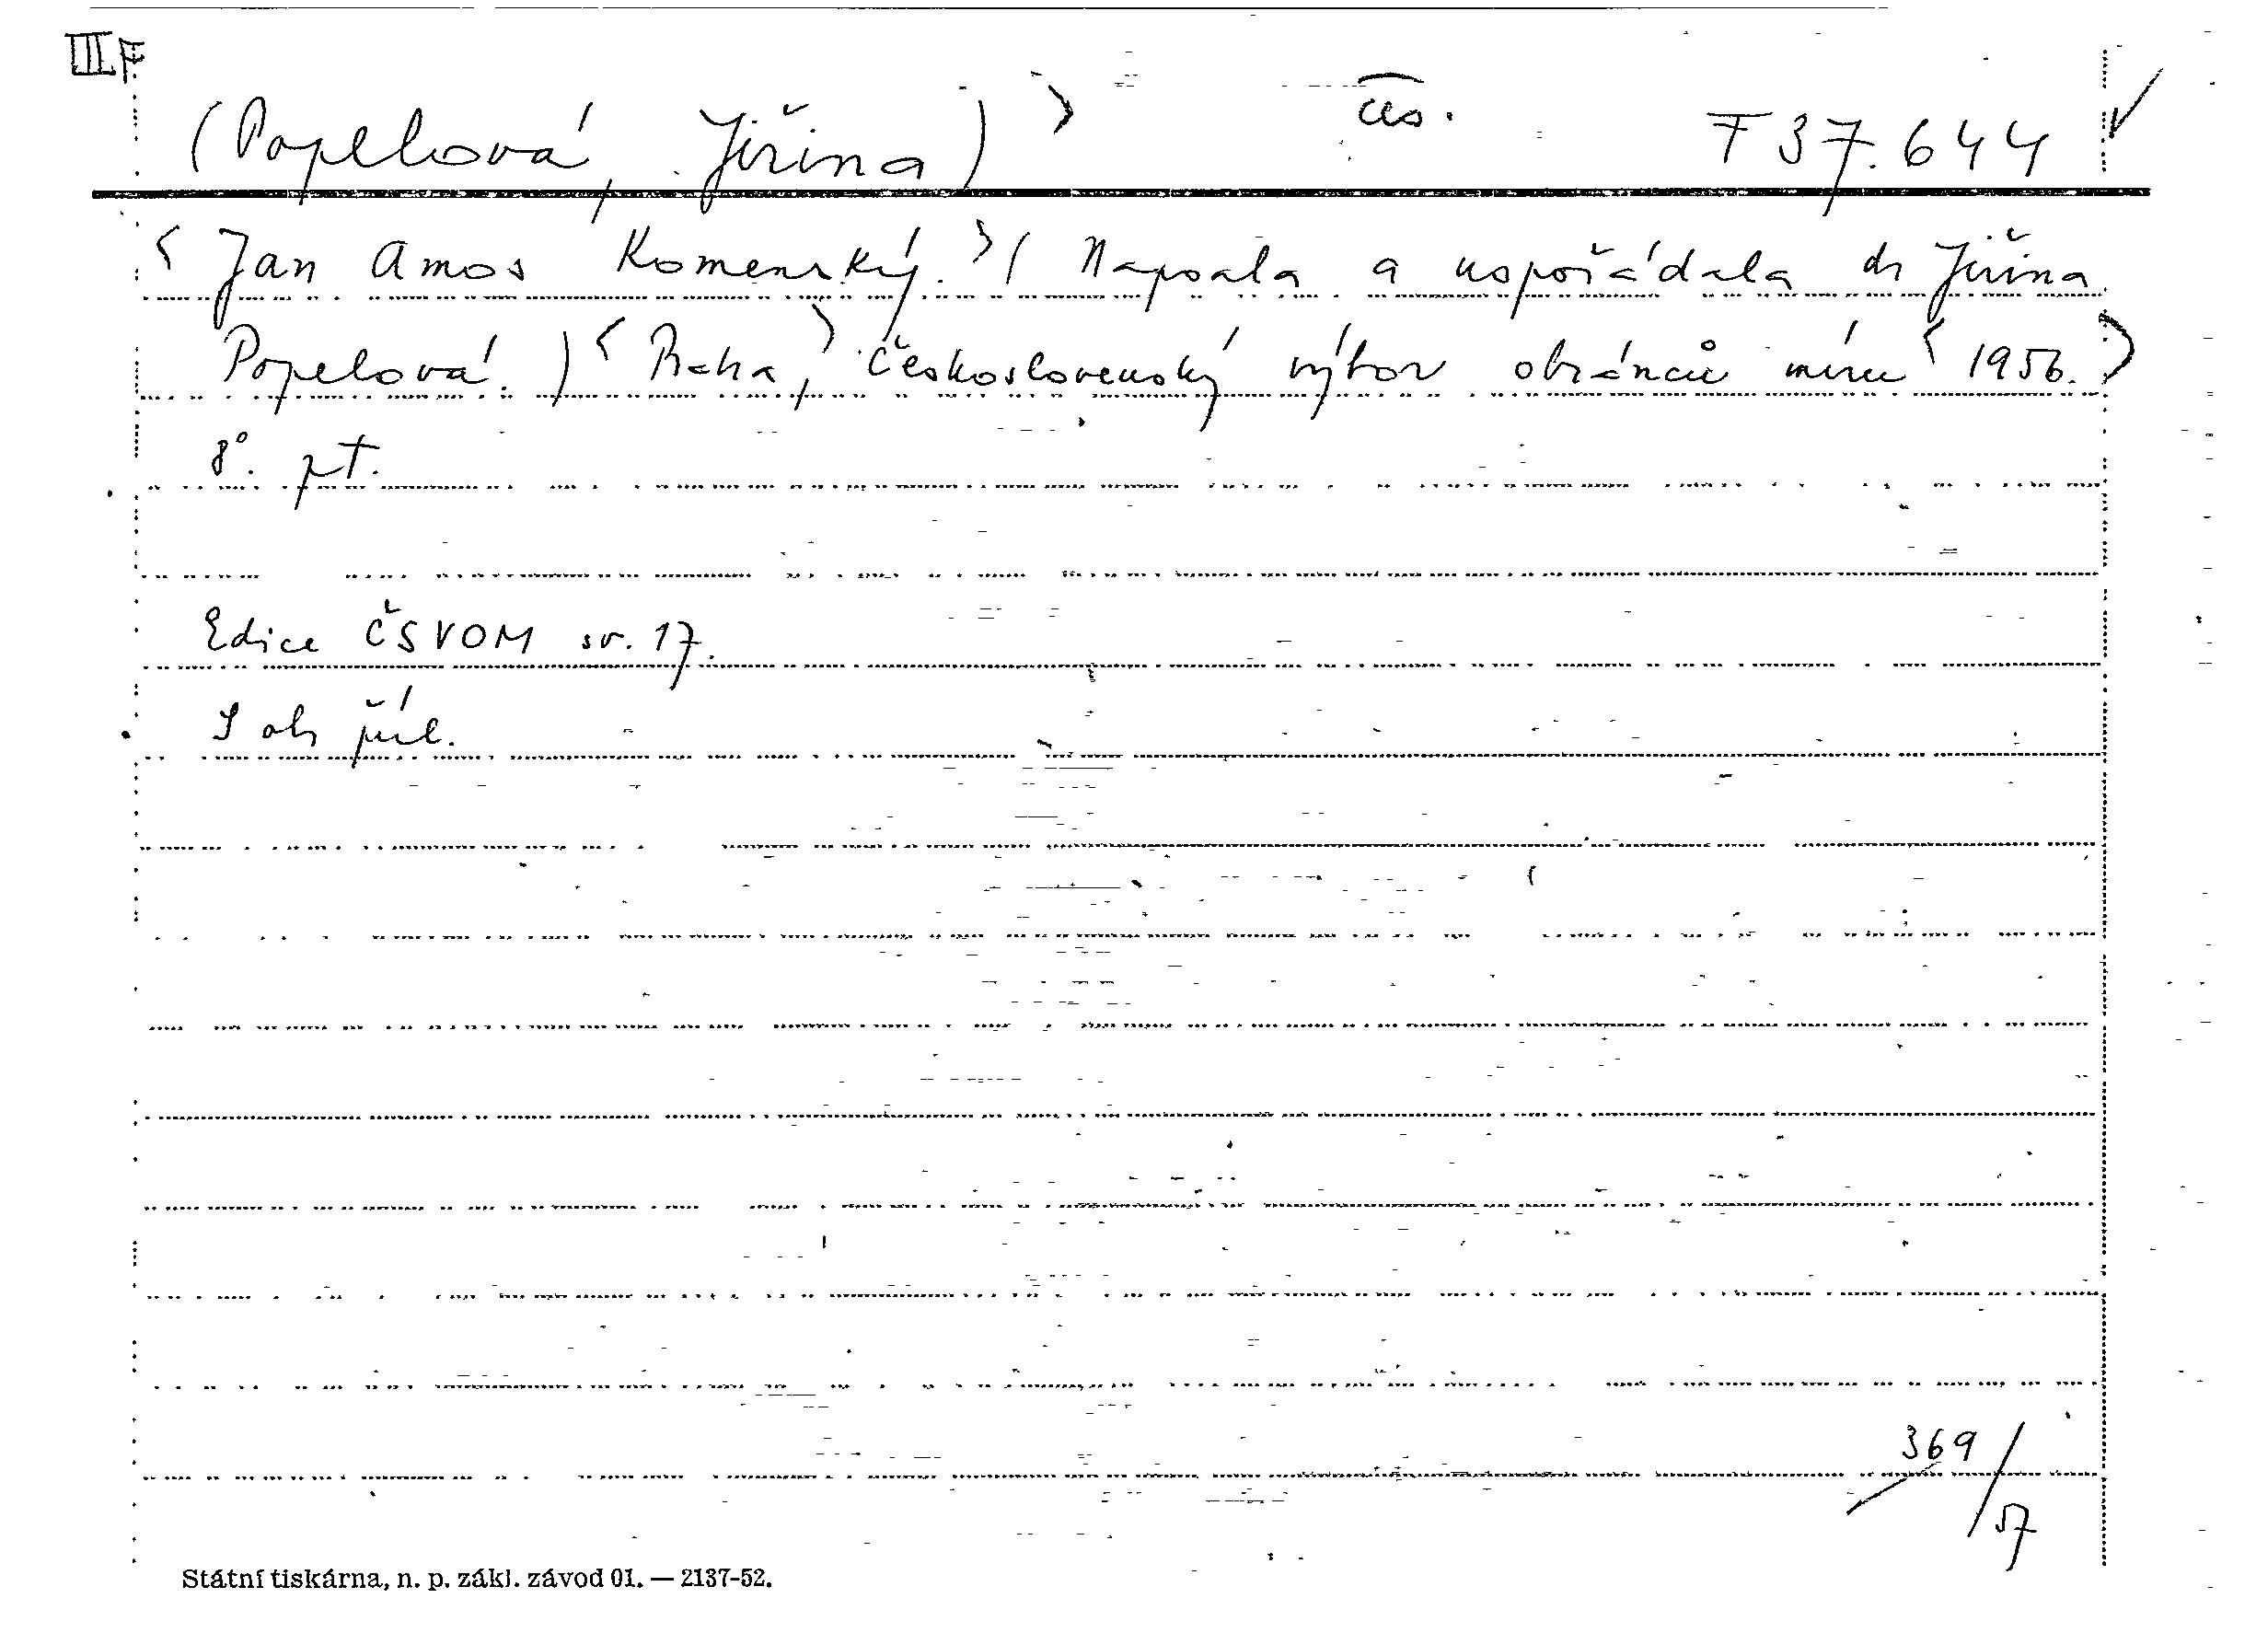 III F
(Popelová, Jiřina) > čes. F 37.644 ✓
< Jan Amos Komenský. > ( Napsala a uspořádala dr Jiřina
Popelová. ) < Praha, > Československý výbor obránců míru < 1956. >
8°. pt.
Edice ČSVOM sv. 17.
S ob příl.
369/57
Státní tiskárna, n. p. zákl. závod 01. — 2137-52.